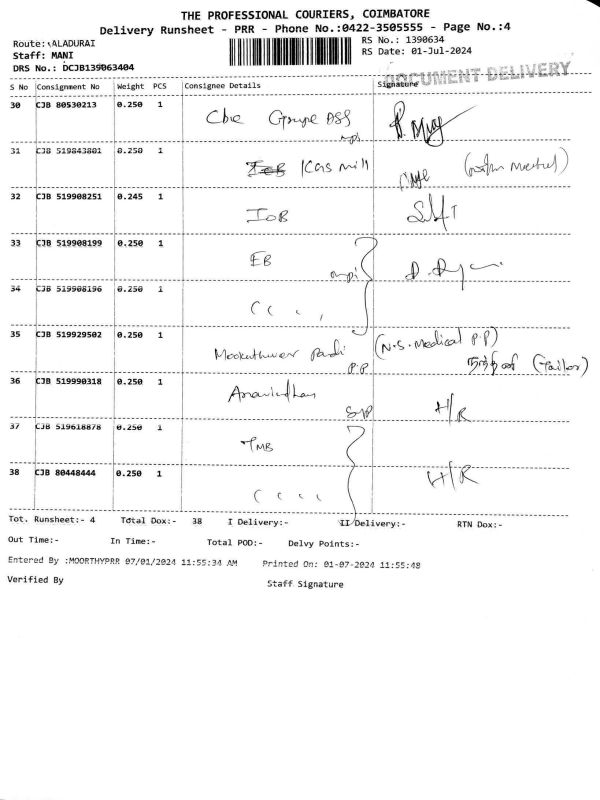 THE PROFESSIONAL COURIERS, COIMBATORE
Delivery Runsheet - PRR - Phone No.:0422-3505555 - Page No.:4
Route: ALADURAI
Staff: MANI
DRS No.: DCJB139063404
RS No.: 1390634
RS Date: 01-Jul-2024
DOCUMENT DELIVERY
S No Consignment No Weight PCS Consignee Details Signature
30 CJB 80530213 0.250 1
31 CJB 519843801 0.250 1 mill
32 CJB 519908251 0.245 1 IOB
33 CJB 519908199 0.250 1 EB
34 CJB 519908196 0.250 1
35 CJB 519929502 0.250 1 P.P (N.S. Medical P.P)
(Tailor)
36 CJB 519990318 0.250 1 H/R
37 CJB 519618878 0.250 1 TMB
38 CJB 80448444 0.250 1 H/R
Tot. Runsheet:- 4 Total Dox:- 38 I Delivery:- II Delivery:- RTN Dox:-
Out Time:- In Time:- Total POD:- Delvy Points:-
Entered By :MOORTHYPRR 07/01/2024 11:55:34 AM Printed On: 01-07-2024 11:55:48
Verified By Staff Signature